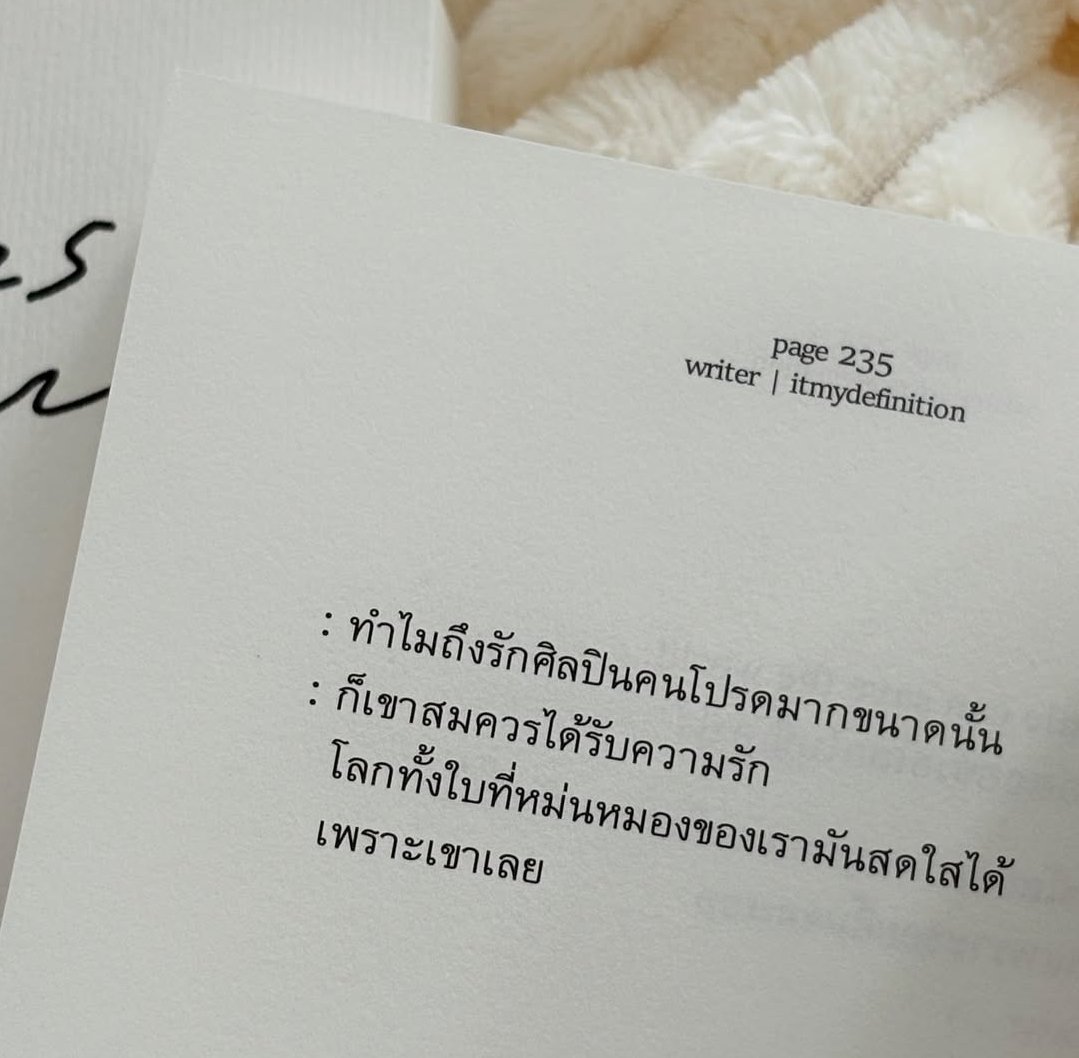 page 235
writer | itmydefinition
: ทำไมถึงรักศิลปินคนโปรดมากขนาดนั้น
: ก็เขาสมควรได้รับความรัก
โลกทั้งใบที่หม่นหมองของเรามันสดใสได้
เพราะเขาเลย